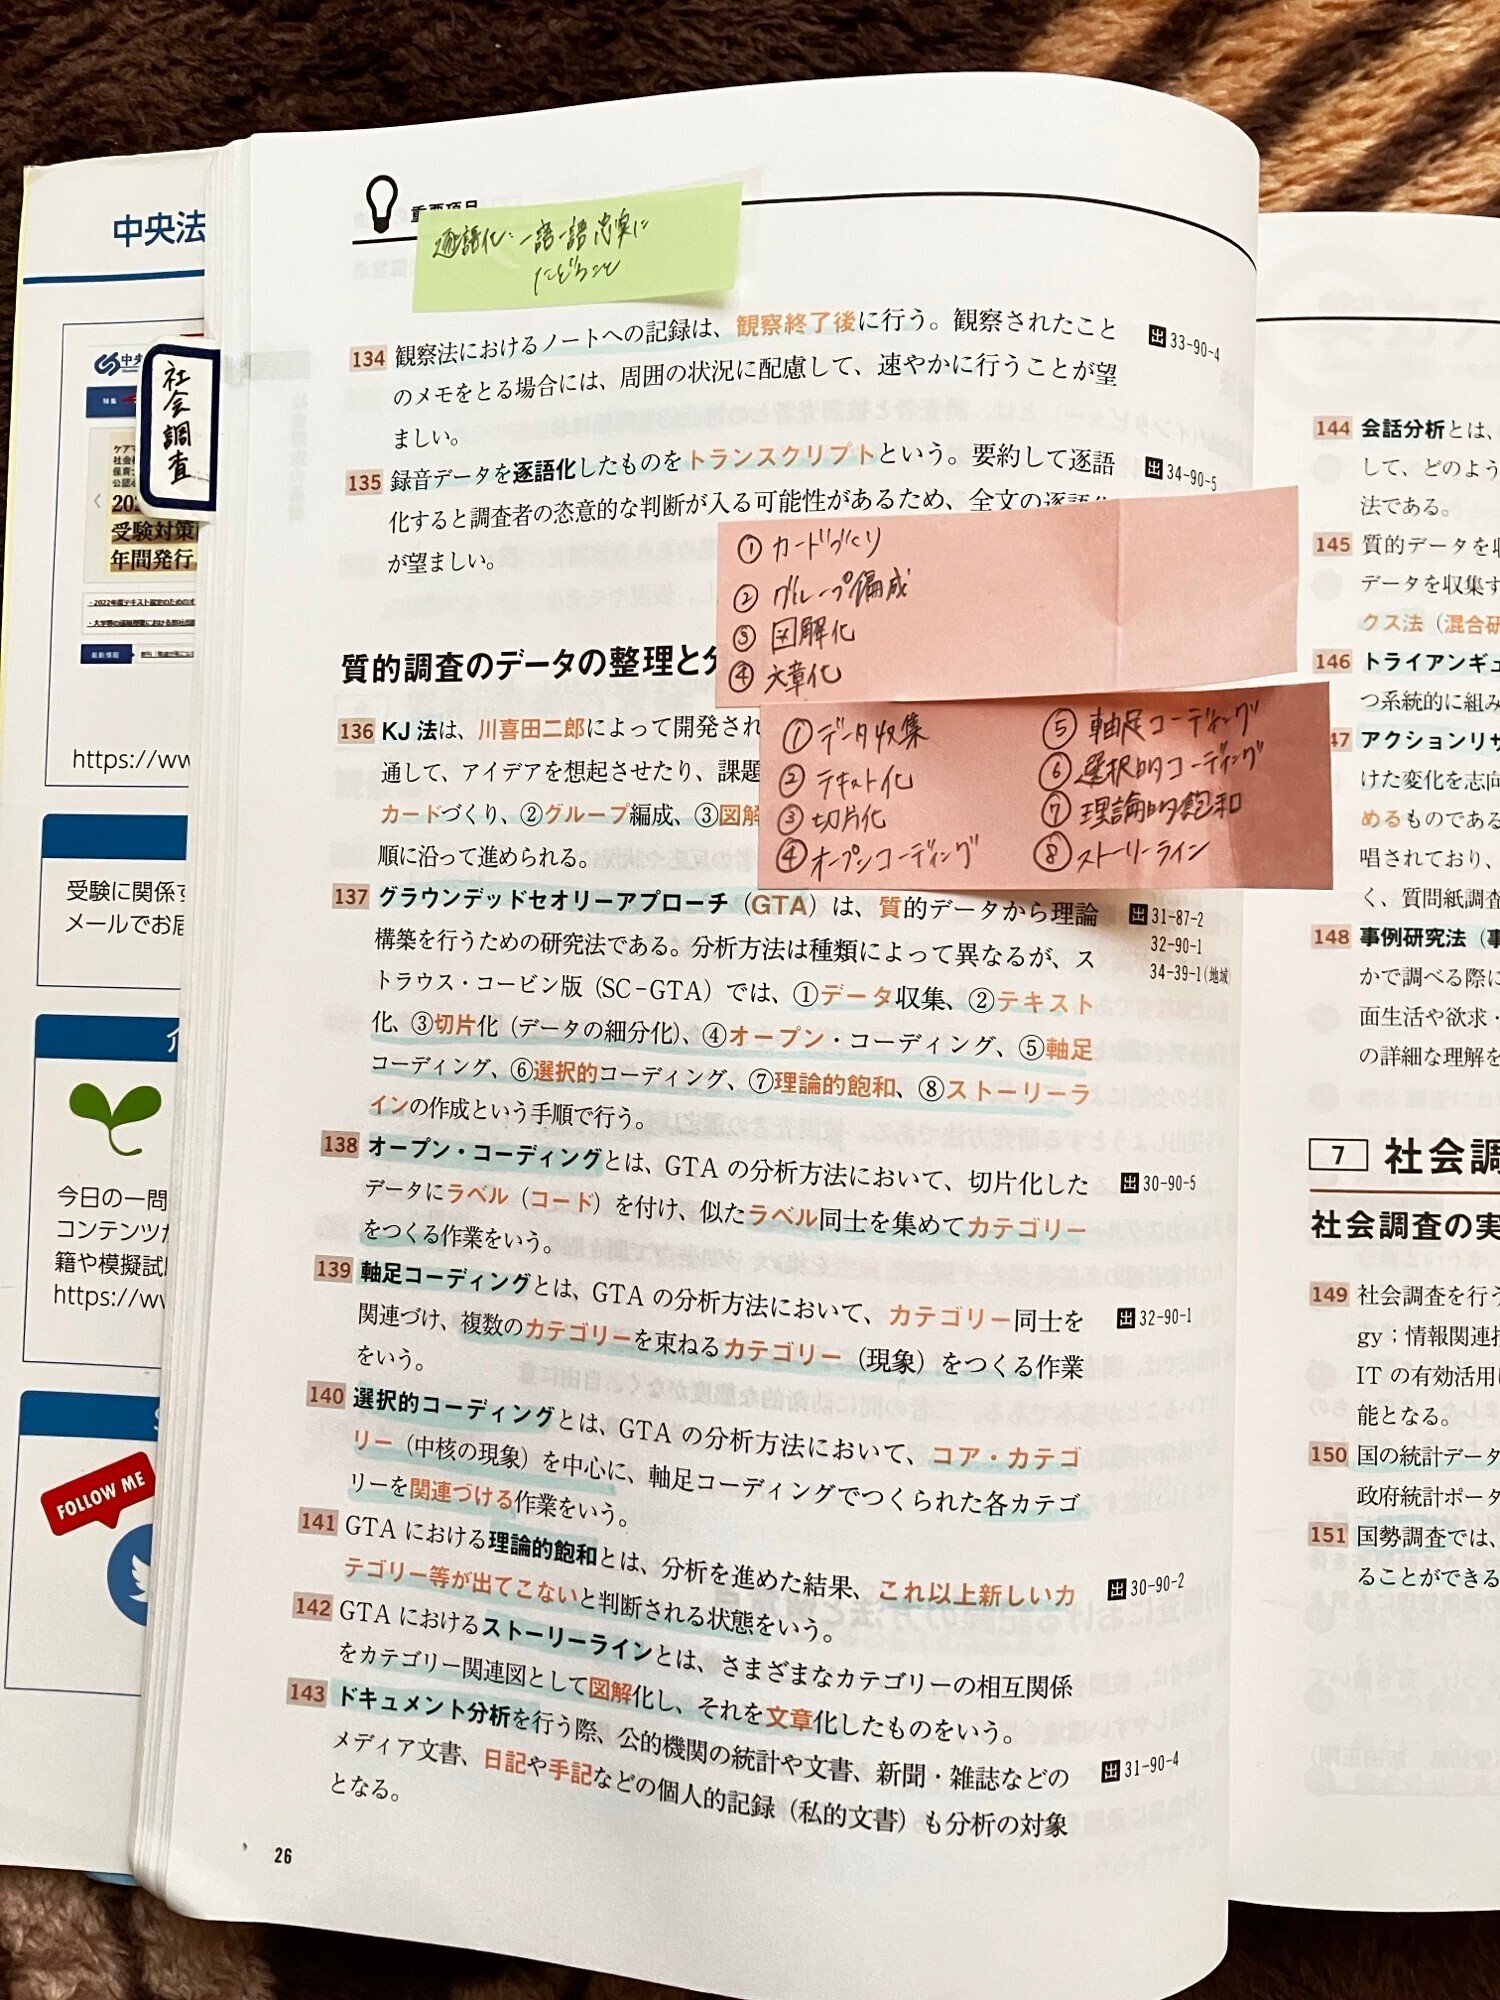 重要項目
逐語化:一語一語忠実に
たどること
134 観察法におけるノートへの記録は、観察終了後に行う。観察されたこと
のメモをとる場合には、周囲の状況に配慮して、速やかに行うことが望
ましい。
出 33-90-4
135 録音データを逐語化したものをトランスクリプトという。要約して逐語
化すると調査者の恣意的な判断が入る可能性があるため、全文の逐語化
が望ましい。
出 34-90-5
①カードづくり
②グループ編成
③図解化
④文章化
質的調査のデータの整理と分
136 KJ法は、川喜田二郎によって開発され
通して、アイデアを想起させたり、課題
カードづくり、②グループ編成、③図解
順に沿って進められる。
①データ収集
②テキスト化
③切片化
④オープンコーディング
⑤軸足コーディング
⑥選択的コーディング
⑦理論的飽和
⑧ストーリーライン
137 グラウンデッドセオリーアプローチ(GTA)は、質的データから理論
構築を行うための研究法である。分析方法は種類によって異なるが、ス
トラウス・コービン版(SC-GTA)では、①データ収集、②テキスト
化、③切片化(データの細分化)、④オープン・コーディング、⑤軸足
コーディング、⑥選択的コーディング、⑦理論的飽和、⑧ストーリーラ
インの作成という手順で行う。
出 31-87-2
32-90-1
34-39-1(地域)
138 オープン・コーディングとは、GTAの分析方法において、切片化した
データにラベル(コード)を付け、似たラベル同士を集めてカテゴリー
をつくる作業をいう。
出 30-90-5
139 軸足コーディングとは、GTAの分析方法において、カテゴリー同士を
関連づけ、複数のカテゴリーを束ねるカテゴリー(現象)をつくる作業
をいう。
出 32-90-1
140 選択的コーディングとは、GTAの分析方法において、コア・カテゴ
リー(中核の現象)を中心に、軸足コーディングでつくられた各カテゴ
リーを関連づける作業をいう。
141 GTAにおける理論的飽和とは、分析を進めた結果、これ以上新しいカ
テゴリー等が出てこないと判断される状態をいう。
出 30-90-2
142 GTAにおけるストーリーラインとは、さまざまなカテゴリーの相互関係
をカテゴリー関連図として図解化し、それを文章化したものをいう。
143 ドキュメント分析を行う際、公的機関の統計や文書、新聞・雑誌などの
メディア文書、日記や手記などの個人的記録(私的文書)も分析の対象
となる。
出 31-90-4
26
社会調査
中央法
中央
特集
ケアマ
社会福
保育士
公認心
202
受験対策
年間発行
https://ww
受験に関係す
メールでお届
今日の一問
コンテンツ
籍や模擬試
https://ww
S
FOLLOW ME
144 会話分析とは、
して、どのよう
法である。
145 質的データを収
データを収集す
クス法(混合研
146 トライアンギュ
つ系統的に組み
47 アクションリサ
けた変化を志向
めるものである
唱されており、
く、質問紙調査
148 事例研究法(事
かで調べる際に
面生活や欲求・
の詳細な理解を
7 社会調
社会調査の実
149 社会調査を行う
gy:情報関連技
ITの有効活用
能となる。
150 国の統計データ
政府統計ポータ
151 国勢調査では、
ることができる